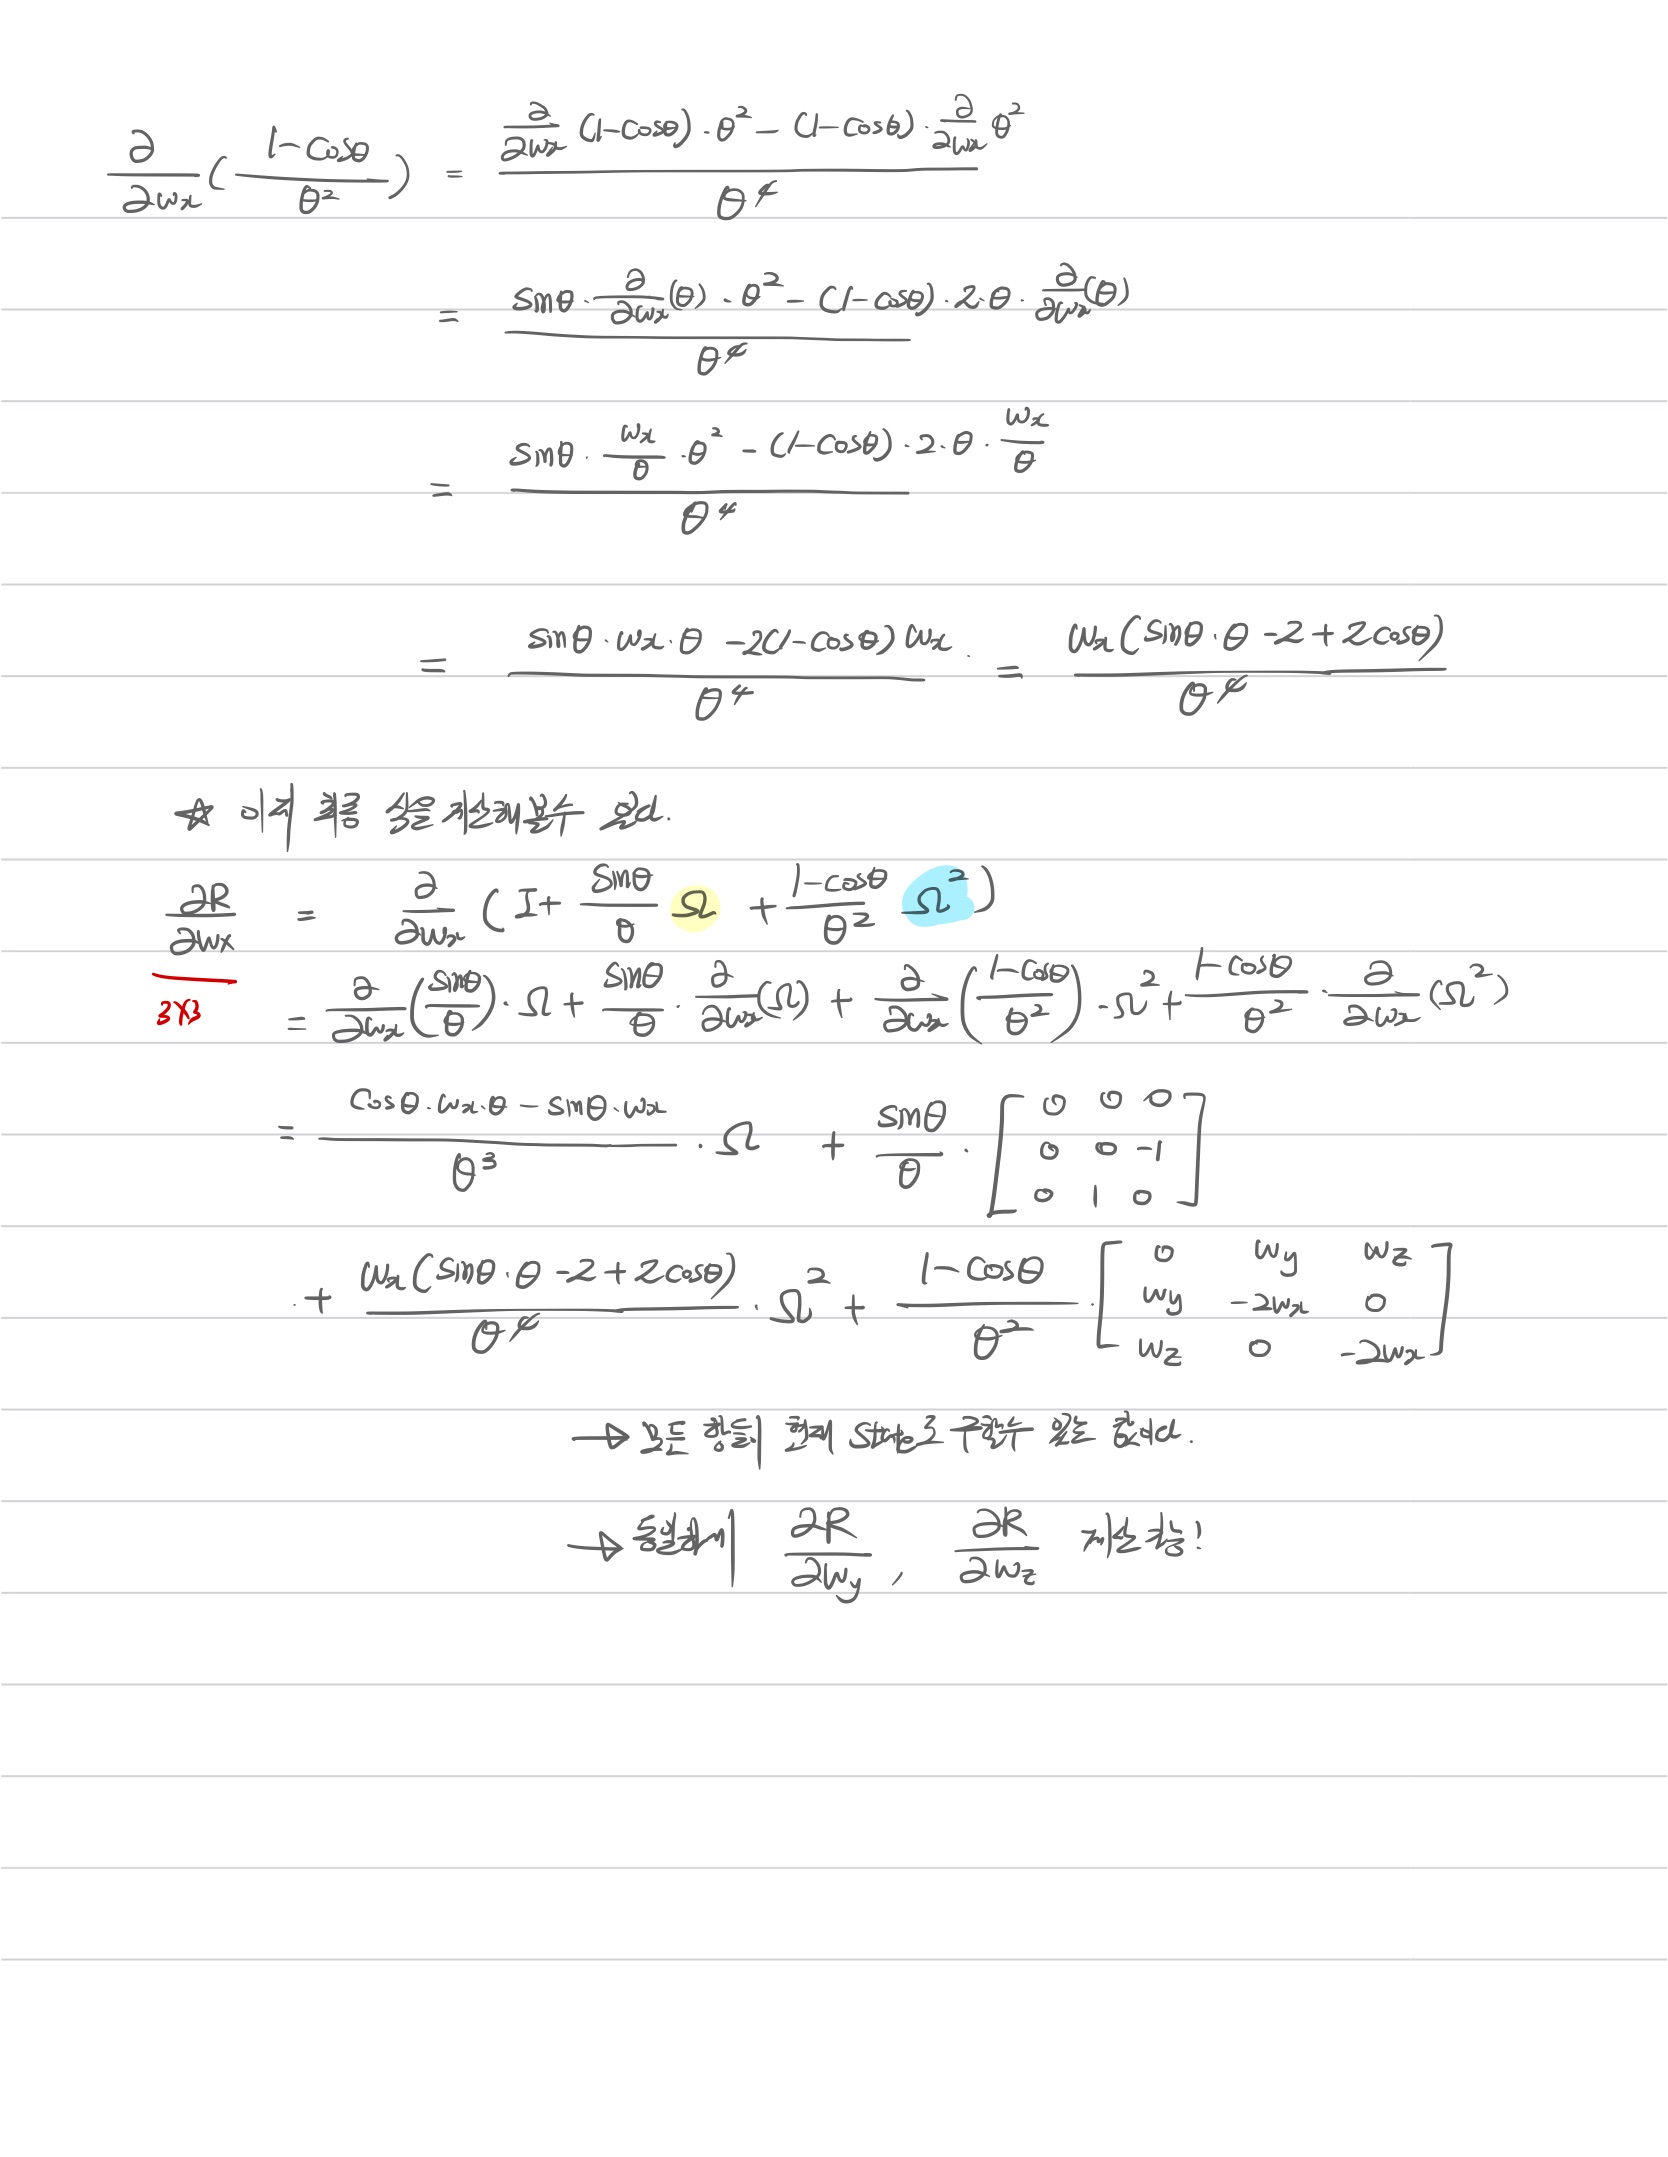 ∂/∂wx ( (1-cosθ)/θ² ) = ( ∂/∂wx (1-cosθ)·θ² - (1-cosθ)·∂/∂wx θ² ) / θ⁴
= ( sinθ·∂/∂wx(θ)·θ² - (1-cosθ)·2·θ·∂/∂wx(θ) ) / θ⁴
= ( sinθ·wx/θ·θ² - (1-cosθ)·2·θ·wx/θ ) / θ⁴
= ( sinθ·wx·θ - 2(1-cosθ)wx ) / θ⁴ = wx(sinθ·θ - 2 + 2cosθ) / θ⁴
☆ 이제 최종 식을 계산해볼수 있다.
∂R/∂wx = ∂/∂wx ( I + sinθ/θ Ω + (1-cosθ)/θ² Ω² )
3x3
= ∂/∂wx (sinθ/θ)·Ω + sinθ/θ·∂/∂wx(Ω) + ∂/∂wx ((1-cosθ)/θ²)·Ω² + (1-cosθ)/θ²·∂/∂wx(Ω²)
= (cosθ·wx·θ - sinθ·wx)/θ³ · Ω + sinθ/θ · [0 0 0
0 0 -1
0 1 0]
+ wx(sinθ·θ - 2 + 2cosθ)/θ⁴ · Ω² + (1-cosθ)/θ² · [0 wy wz
wy -2wx 0
wz 0 -2wx]
→ 모든 항들이 현재 state로 구할수 있는 값이다.
→ 동일하게 ∂R/∂wy , ∂R/∂wz 계산 가능!